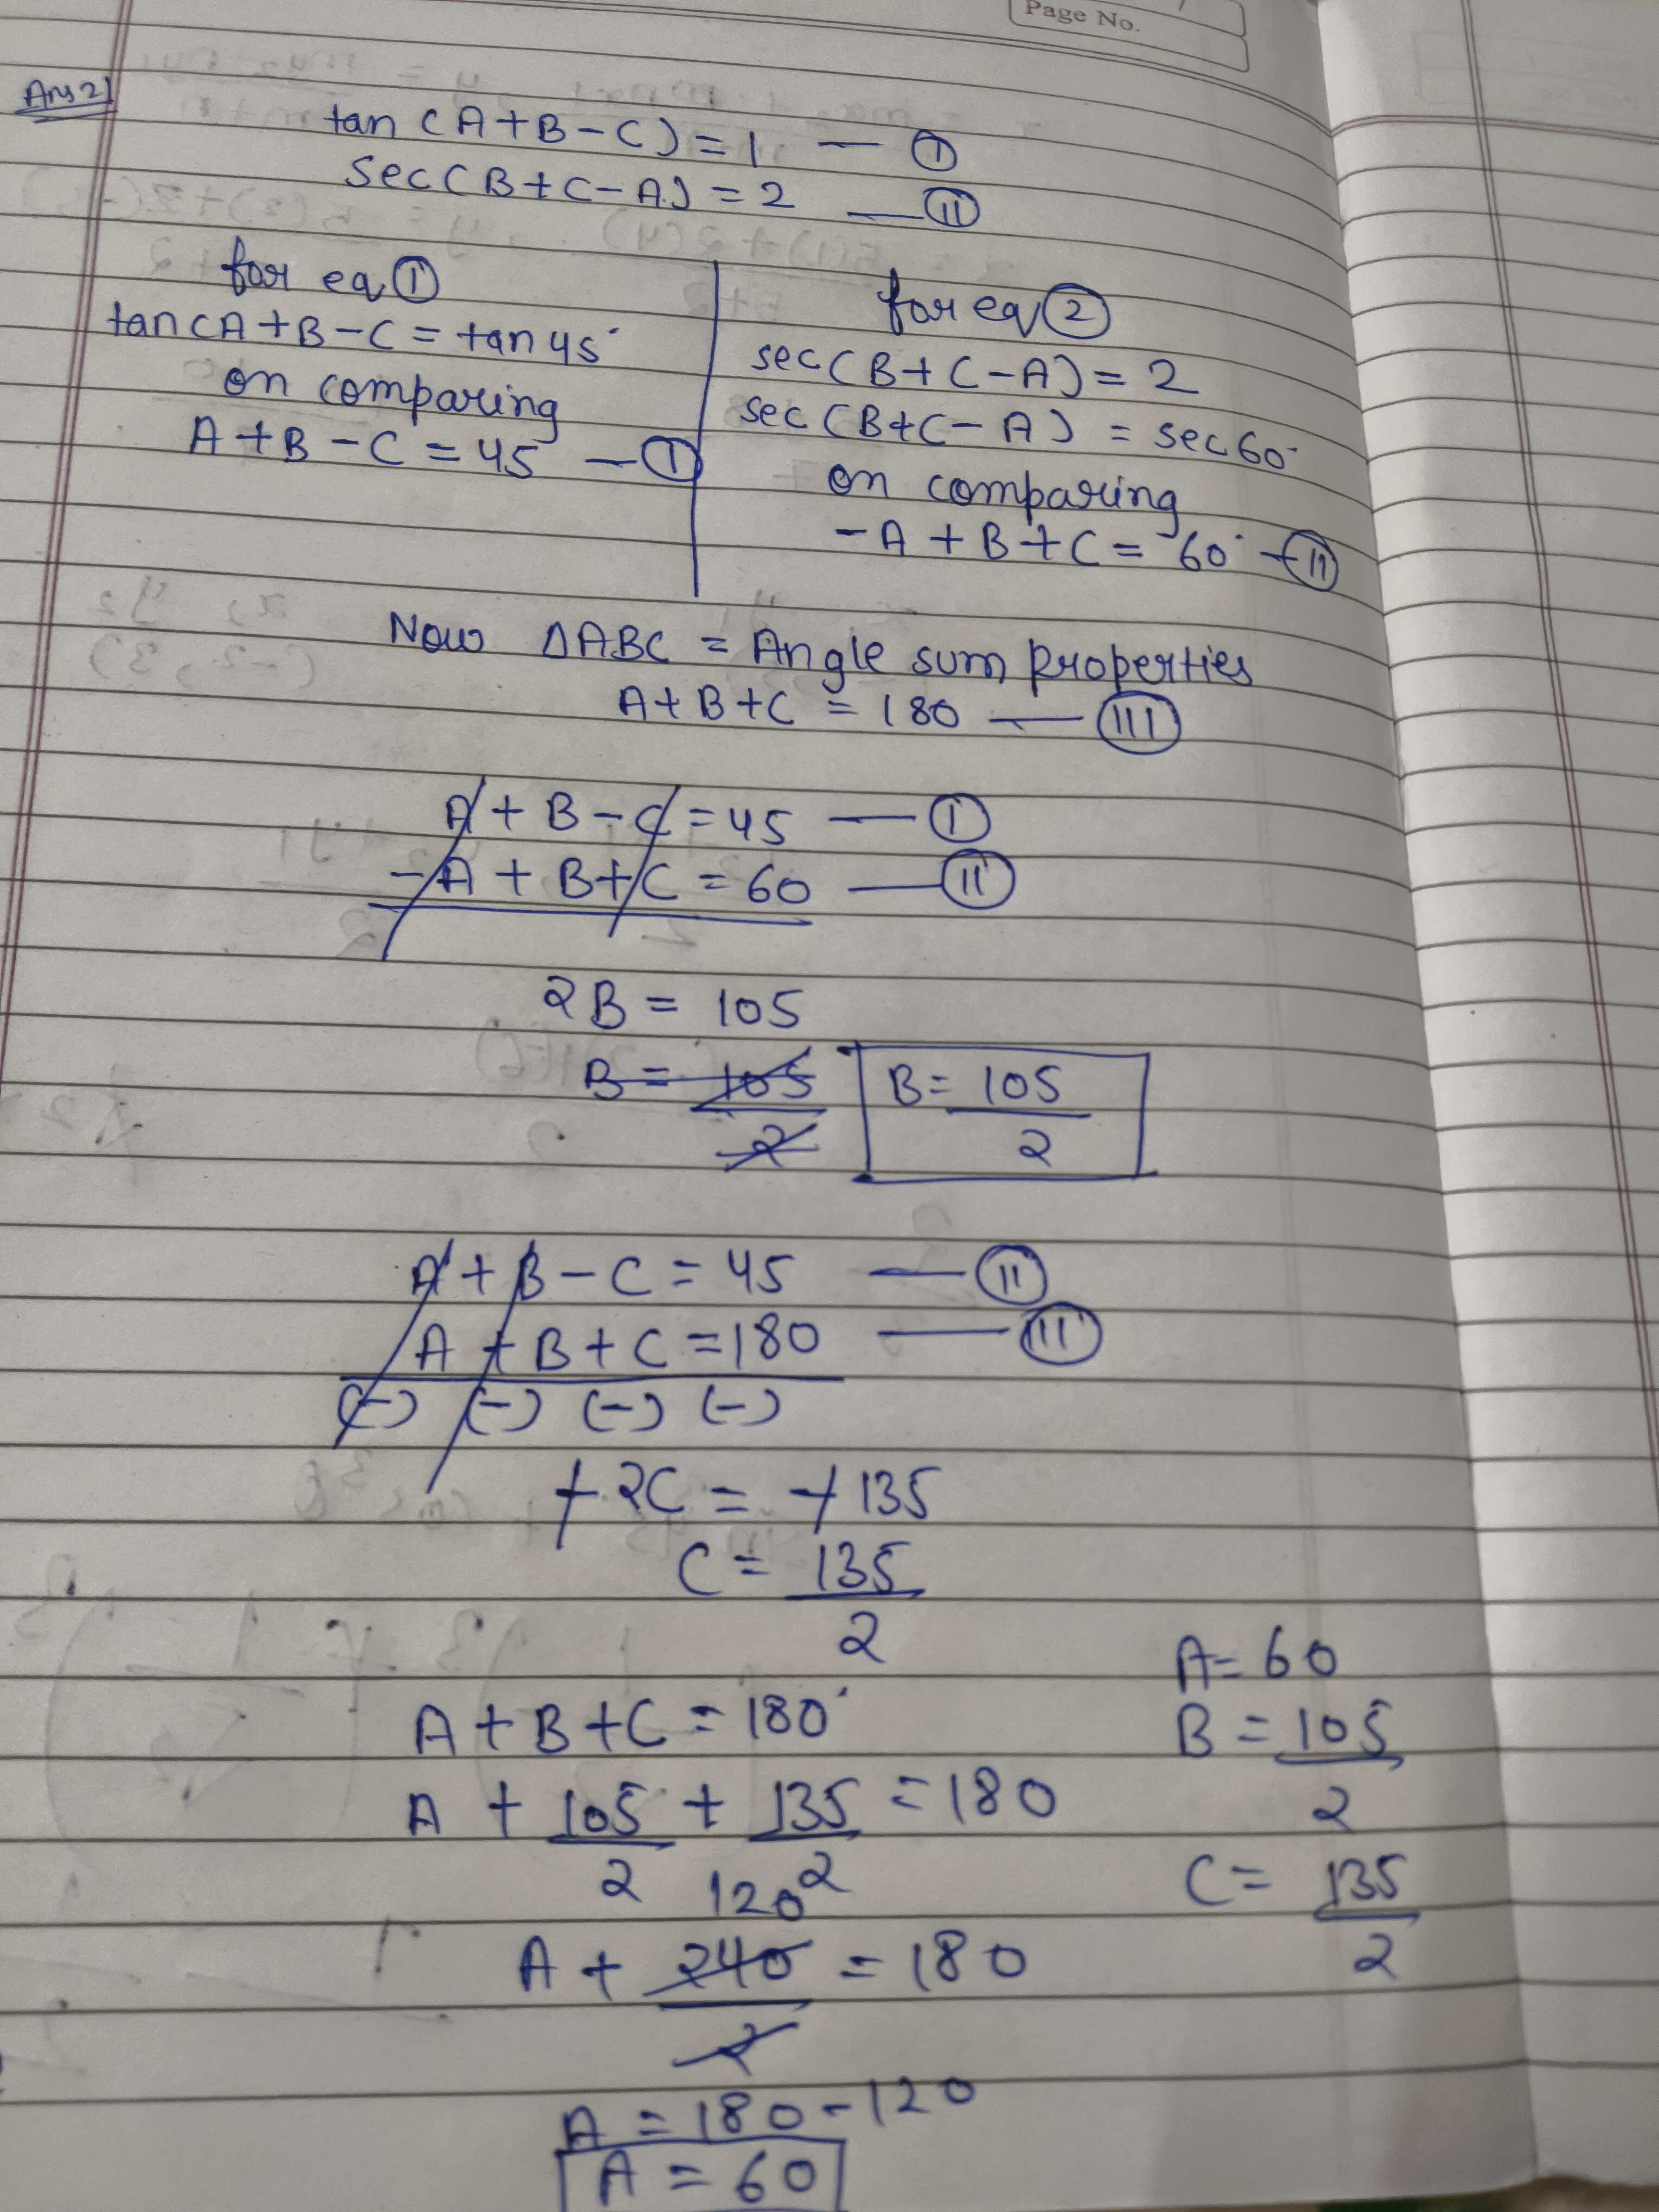 Page No.
Ans 2)
tan (A+B-C) = 1 — (I)
sec(B+C-A) = 2 — (II)
for eq (1)
tan(A+B-C = tan 45°
on comparing
A+B-C = 45 — (I)
for eq (2)
sec(B+C-A) = 2
sec(B+C-A) = sec60°
on comparing
-A+B+C = 60° — (II)
Now ΔABC = Angle sum properties
A+B+C = 180 — (III)
A+B-C = 45 — (I)
-A+B+C = 60 — (II)
2B = 105
B = 105/2
B = 105/2
A+B-C = 45 — (II)
A+B+C = 180 — (III)
(-) (-) (-) (-)
-2C = -135
C = 135/2
A+B+C = 180°
A + 105/2 + 135/2 = 180
120
A + 240/2 = 180
A = 180-120
A = 60
A = 60
B = 105/2
C = 135/2